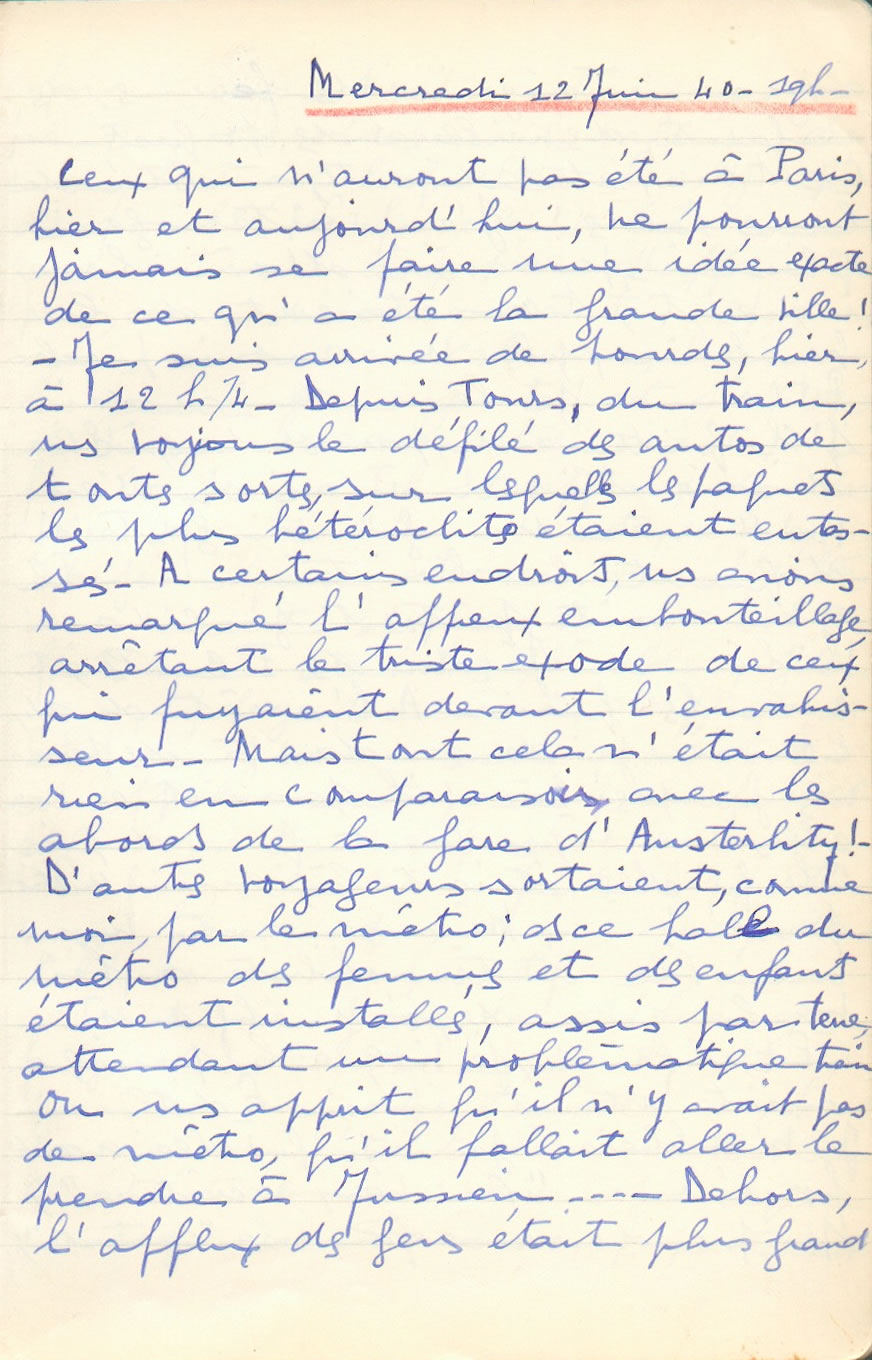 Mercredi 12 Juin 40 - 19h -
Ceux qui n'auront pas été à Paris,
hier et aujourd'hui, ne pourront
jamais se faire une idée exacte
de ce qu'a été la grande ville !
- Je suis arrivée de Lourdes, hier,
à 12 h/4 - Depuis Tours, du train,
ns voyions le défilé des autos de
toutes sortes, sur lesquelles les paquets
les plus hétéroclites étaient entas-
sés - A certains endroits, ns avions
remarqué l'affreux embouteillage,
arrêtant le triste exode de ceux
qui fuyaient devant l'envahis-
seur - Mais tout cela n'était
rien en comparaison, avec les
abords de la gare d'Austerlitz ! -
D'autres voyageurs sortaient, comme
moi, par le métro ; ds ce hall du
métro des femmes et des enfants
étaient installés, assis par terre,
attendant un problématique train
On ns apprit qu'il n'y avait pas
de métro, qu'il fallait aller le
prendre à Jussieu ---- Dehors,
l'afflux des gens était plus grand